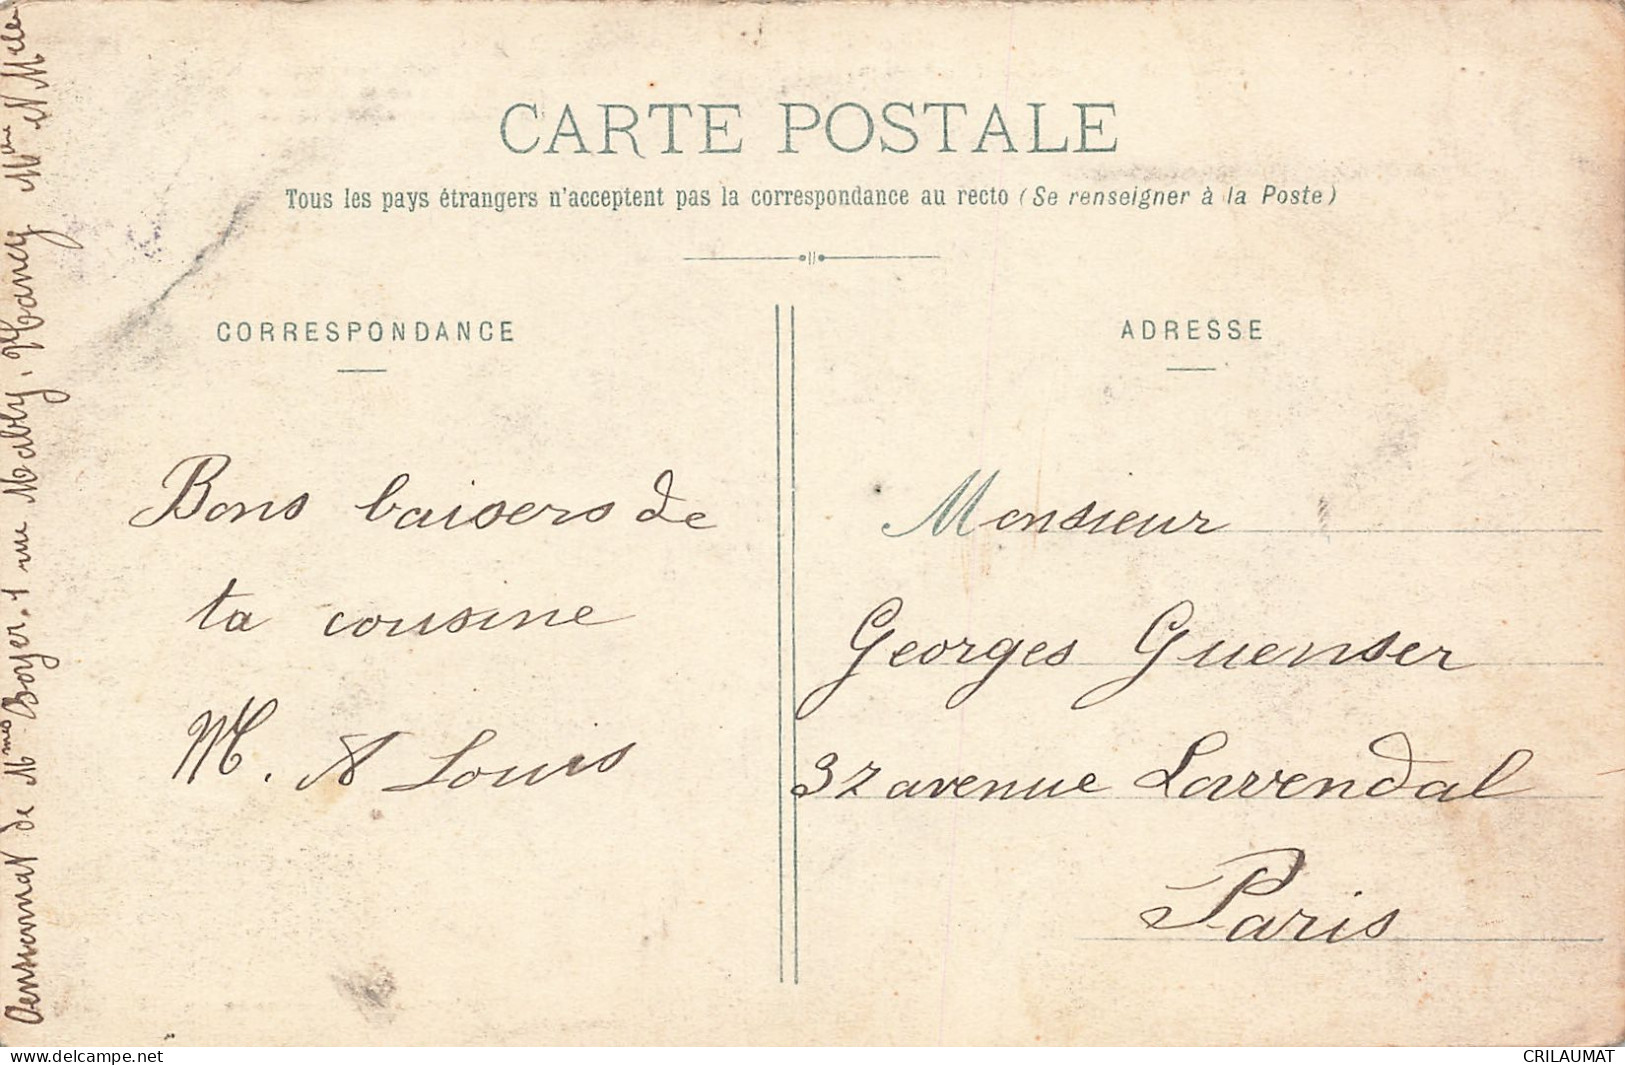 CARTE POSTALE
Tous les pays étrangers n'acceptent pas la correspondance au recto (Se renseigner à la Poste)
CORRESPONDANCE
Bons baisers de
ta cousine
M. A Louis
ADRESSE
Monsieur
Georges Guenser
37 avenue Lawendal
Paris
Pensionnat de Mmes Boyer. 1 rue Mably. Nancy Mthe et Mlle
www.delcampe.net
CRILAUMAT